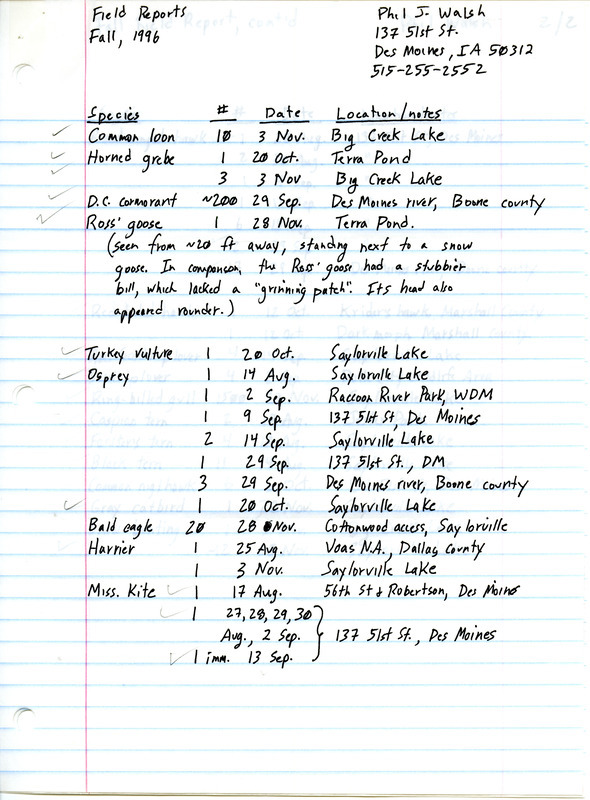 Field Reports
Fall, 1996
Phil J. Walsh
137 51st St.
Des Moines, IA 50312
515-255-2552
Species # Date Location/notes
Common loon 10 3 Nov. Big Creek Lake
Horned grebe 1 20 Oct. Terra Pond
3 3 Nov Big Creek Lake
D.C. cormorant ~200 29 Sep. Des Moines river, Boone county
Ross' goose 1 28 Nov. Terra Pond.
(seen from ~20 ft away, standing next to a snow
goose. In comparison, the Ross' goose had a stubbier
bill, which lacked a "grinning patch". Its head also
appeared rounder.)
Turkey vulture 1 20 Oct. Saylorville Lake
Osprey 1 14 Aug. Saylorville Lake
1 2 Sep. Raccoon River Park, WDM
1 9 Sep. 137 51st St, Des Moines
2 14 Sep. Saylorville Lake
1 29 Sep. 137 51st St., DM
3 29 Sep. Des Moines river, Boone county
1 20 Oct. Saylorville Lake
Bald eagle 20 28 Nov. Cottonwood access, Saylorville
Harrier 1 25 Aug. Voas N.A., Dallas County
1 3 Nov. Saylorville Lake
Miss. Kite 1 17 Aug. 56th St & Robertson, Des Moines
1 27, 28, 29, 30
Aug., 2 Sep. 137 51st St., Des Moines
1 imm. 13 Sep.